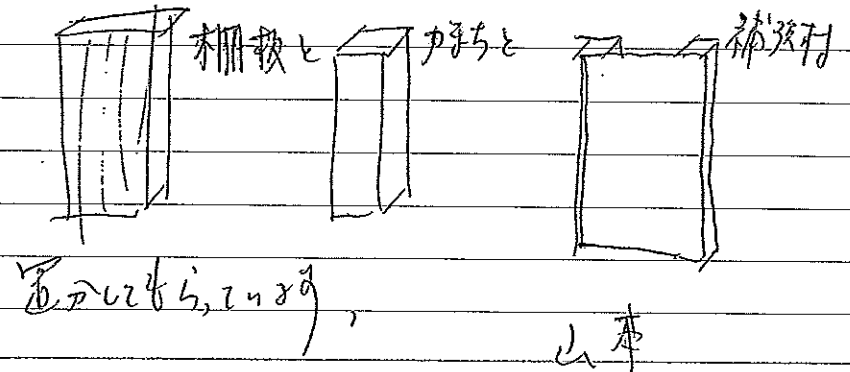 棚板と かまちと 補強材
してもらっています,
山本